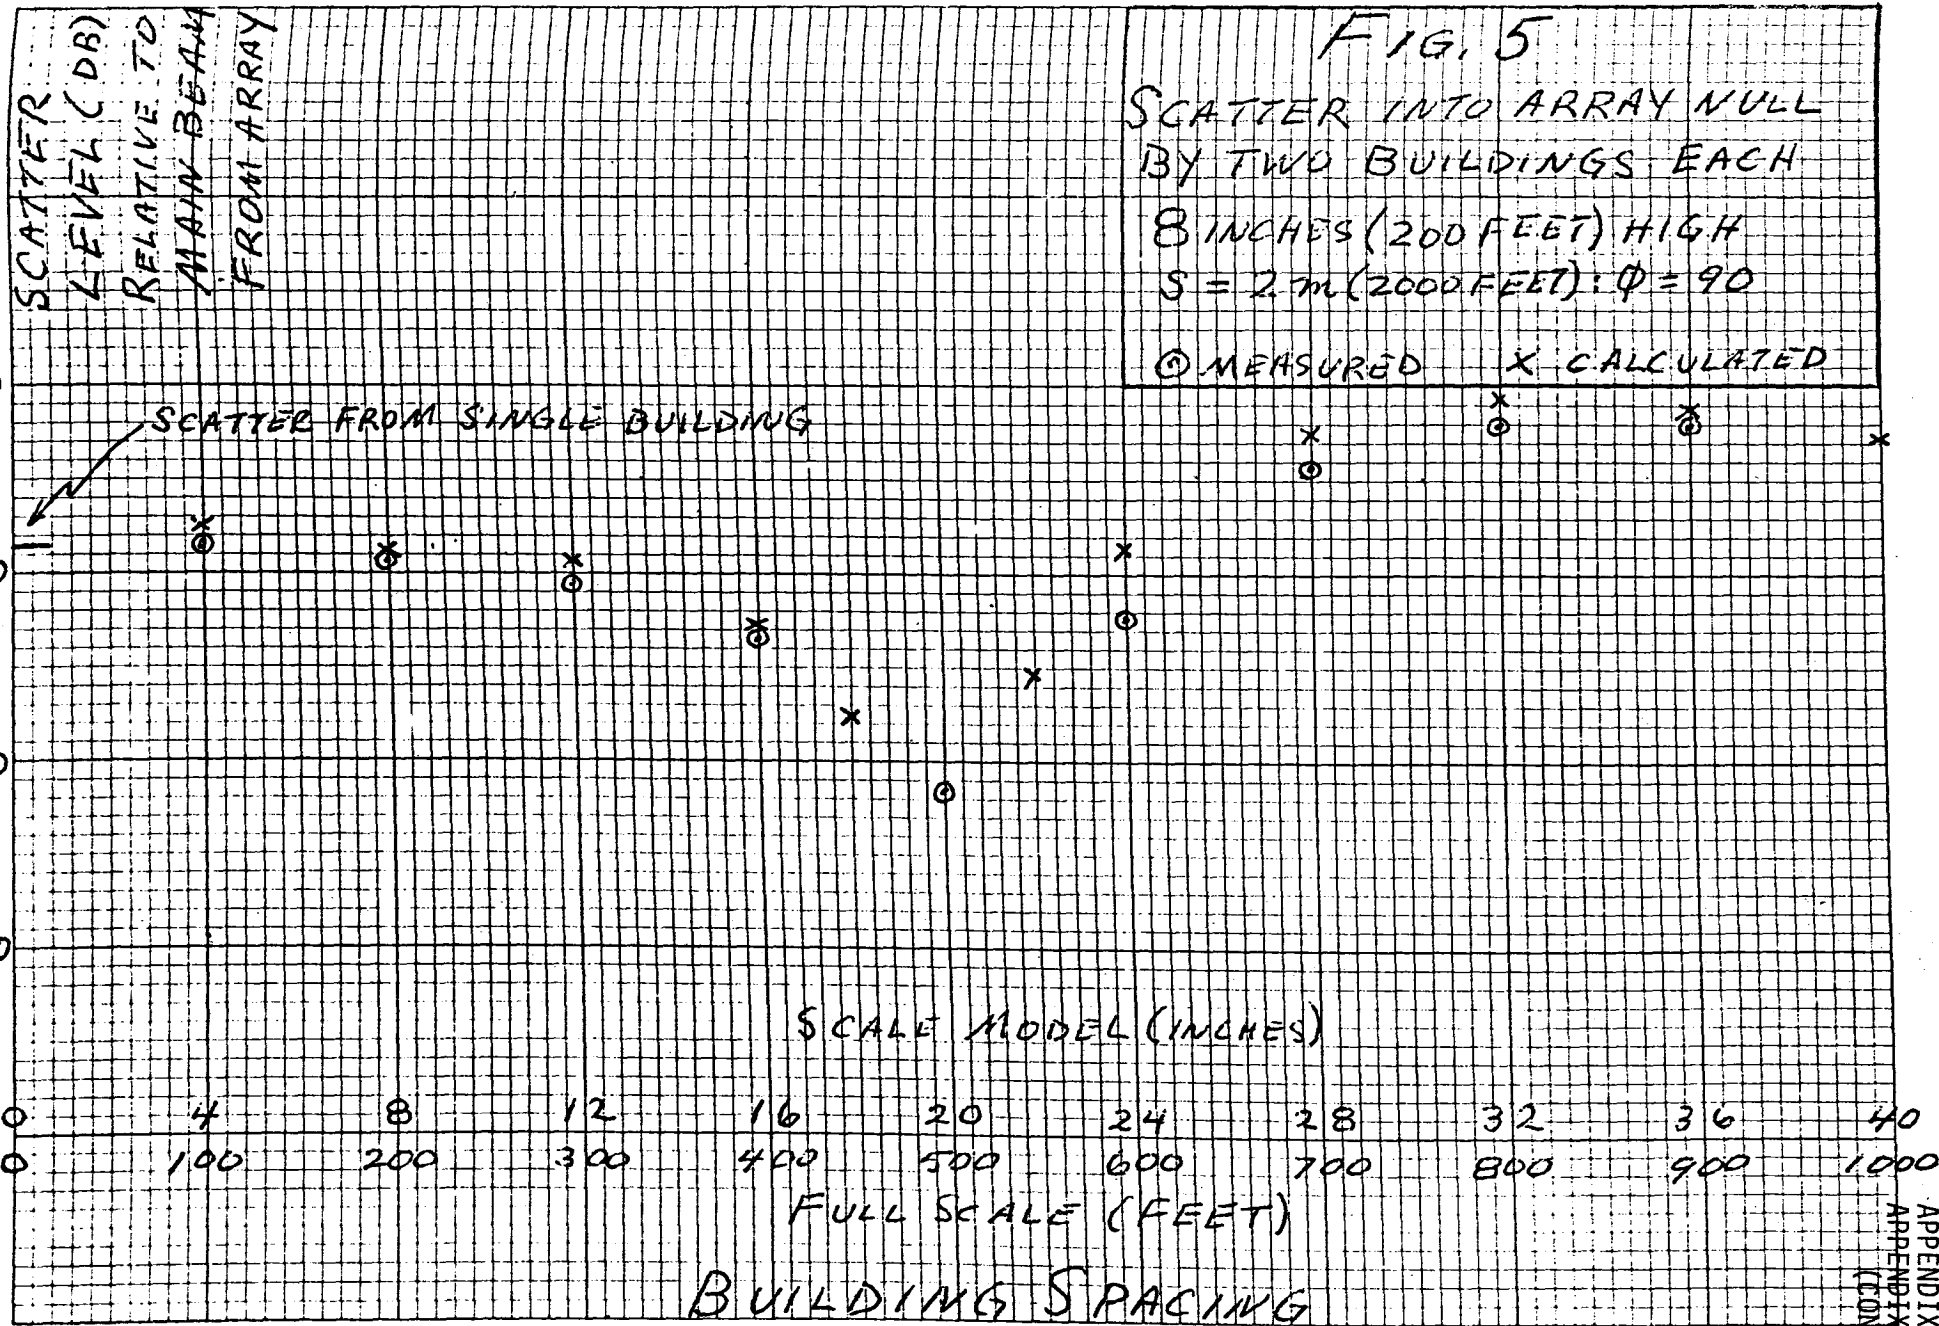 SCATTER
LEVEL (DB)
RELATIVE TO
MAIN BEAM
FROM ARRAY
FIG. 5
SCATTER INTO ARRAY NULL
BY TWO BUILDINGS EACH
8 INCHES (200 FEET) HIGH
S = 2 m (2000 FEET): φ = 90
⊙ MEASURED X CALCULATED
SCATTER FROM SINGLE BUILDING
0
0
0
SCALE MODEL (INCHES)
0 4 8 12 16 20 24 28 32 36 40
0 100 200 300 400 500 600 700 800 900 1000
FULL SCALE (FEET)
BUILDING SPACING
APPENDIX
APPENDIX
(CON